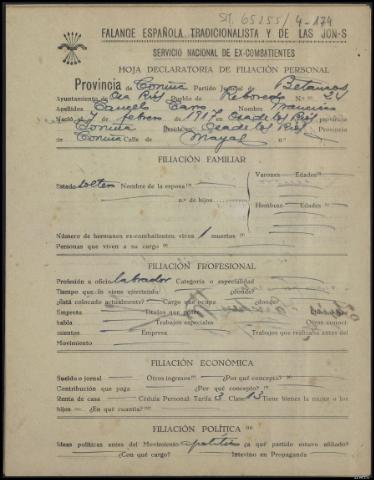 65255/4-174
FALANGE ESPAÑOLA TRADICIONALISTA Y DE LAS JON-S
SERVICIO NACIONAL DE EX-COMBATIENTES
HOJA DECLARATORIA DE FILIACIÓN PERSONAL
Provincia de Coruña Partido Betanzos
Ayuntamiento de Oza Rios Pueblo de Reboredo N.º 24
Apellidos Nombre Francisco
Nació el 7 de febrero de 1917 en Oza de los Rios provincia
Coruña Oza de los Rios Provincia
de Coruña Calle de
FILIACIÓN FAMILIAR
Estado soltero Nombre de la esposa
Varones Edades
n.º de hijos
Hembras Edades
Número de hermanos ex-combatientes, vivos 1 muertos
Personas que viven a su cargo
FILIACIÓN PROFESIONAL
Profesión u oficio labrador Categoría o especialidad
Tiempo que lo viene ejerciendo ¿dónde?
¿Está colocado actualmente? Cargo que ocupa ¿dónde?
Empresa Títulos que posee
habla Trabajos especiales Otros conoci-
mientos Empresa Trabajos que realizaba antes del
Movimiento
FILIACIÓN ECONÓMICA
Sueldo o jornal Otros ingresos ¿Por qué concepto?
Contribución que paga ¿Por qué concepto?
Renta de casa Cédula Personal: Tarifa 3 Clase 13 Tiene bienes la mujer o los
hijos ¿En qué cuantía?
FILIACIÓN POLÍTICA
Ideas políticas antes del Movimiento apolítico ¿a qué partido estuvo afiliado?
¿Con qué cargo? Intervino en Propaganda